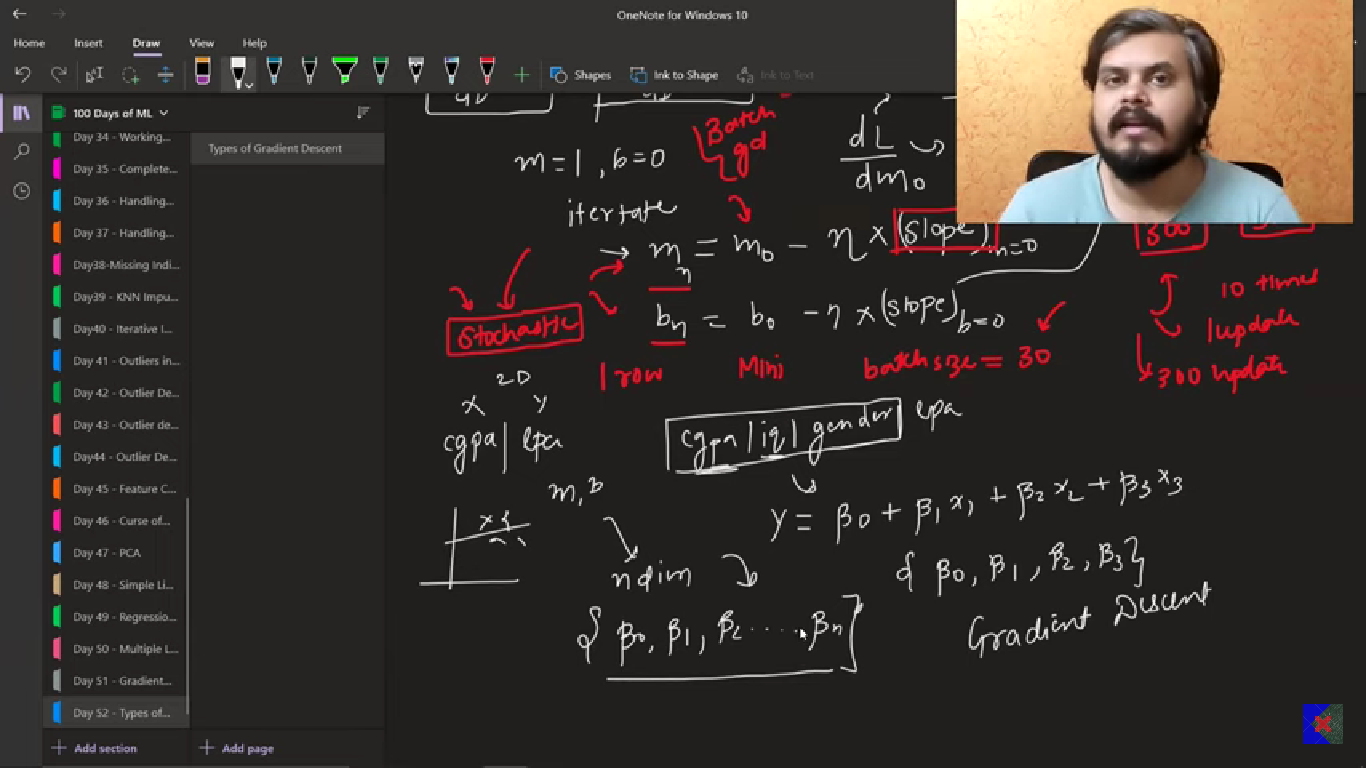 OneNote for Windows 10
Home Insert Draw View Help
Shapes Ink to Shape Ink to Text
100 Days of ML
Day 34 - Working...
Day 35 - Complete...
Day 36 - Handling...
Day 37 - Handling...
Day38-Missing Indi...
Day39 - KNN Impu...
Day40 - Iterative I...
Day 41 - Outliers in...
Day 42 - Outlier De...
Day 43 - Outlier de...
Day44 - Outlier De...
Day 45 - Feature C...
Day 46 - Curse of...
Day 47 - PCA
Day 48 - Simple Li...
Day 49 - Regressio...
Day 50 - Multiple L...
Day 51 - Gradient...
Day 52 - Types of...
Add section
Types of Gradient Descent
Add page
Batch gd
m=1, b=0
dL/dm₀
itertate
m = m₀ - η × (slope) m=0
n
300
bₙ = b₀ - η × (slope) b=0
10 times
1 update
300 update
Stochastic
1 row Mini batch size = 30
2D
x y
cgpa | lpa
cgpa | iq | gender lpa
m, b
y = β₀ + β₁x₁ + β₂x₂ + β₃x₃
n dim
{ β₀, β₁, β₂, β₃}
{ β₀, β₁, β₂ ....., βₙ}
Gradient Descent